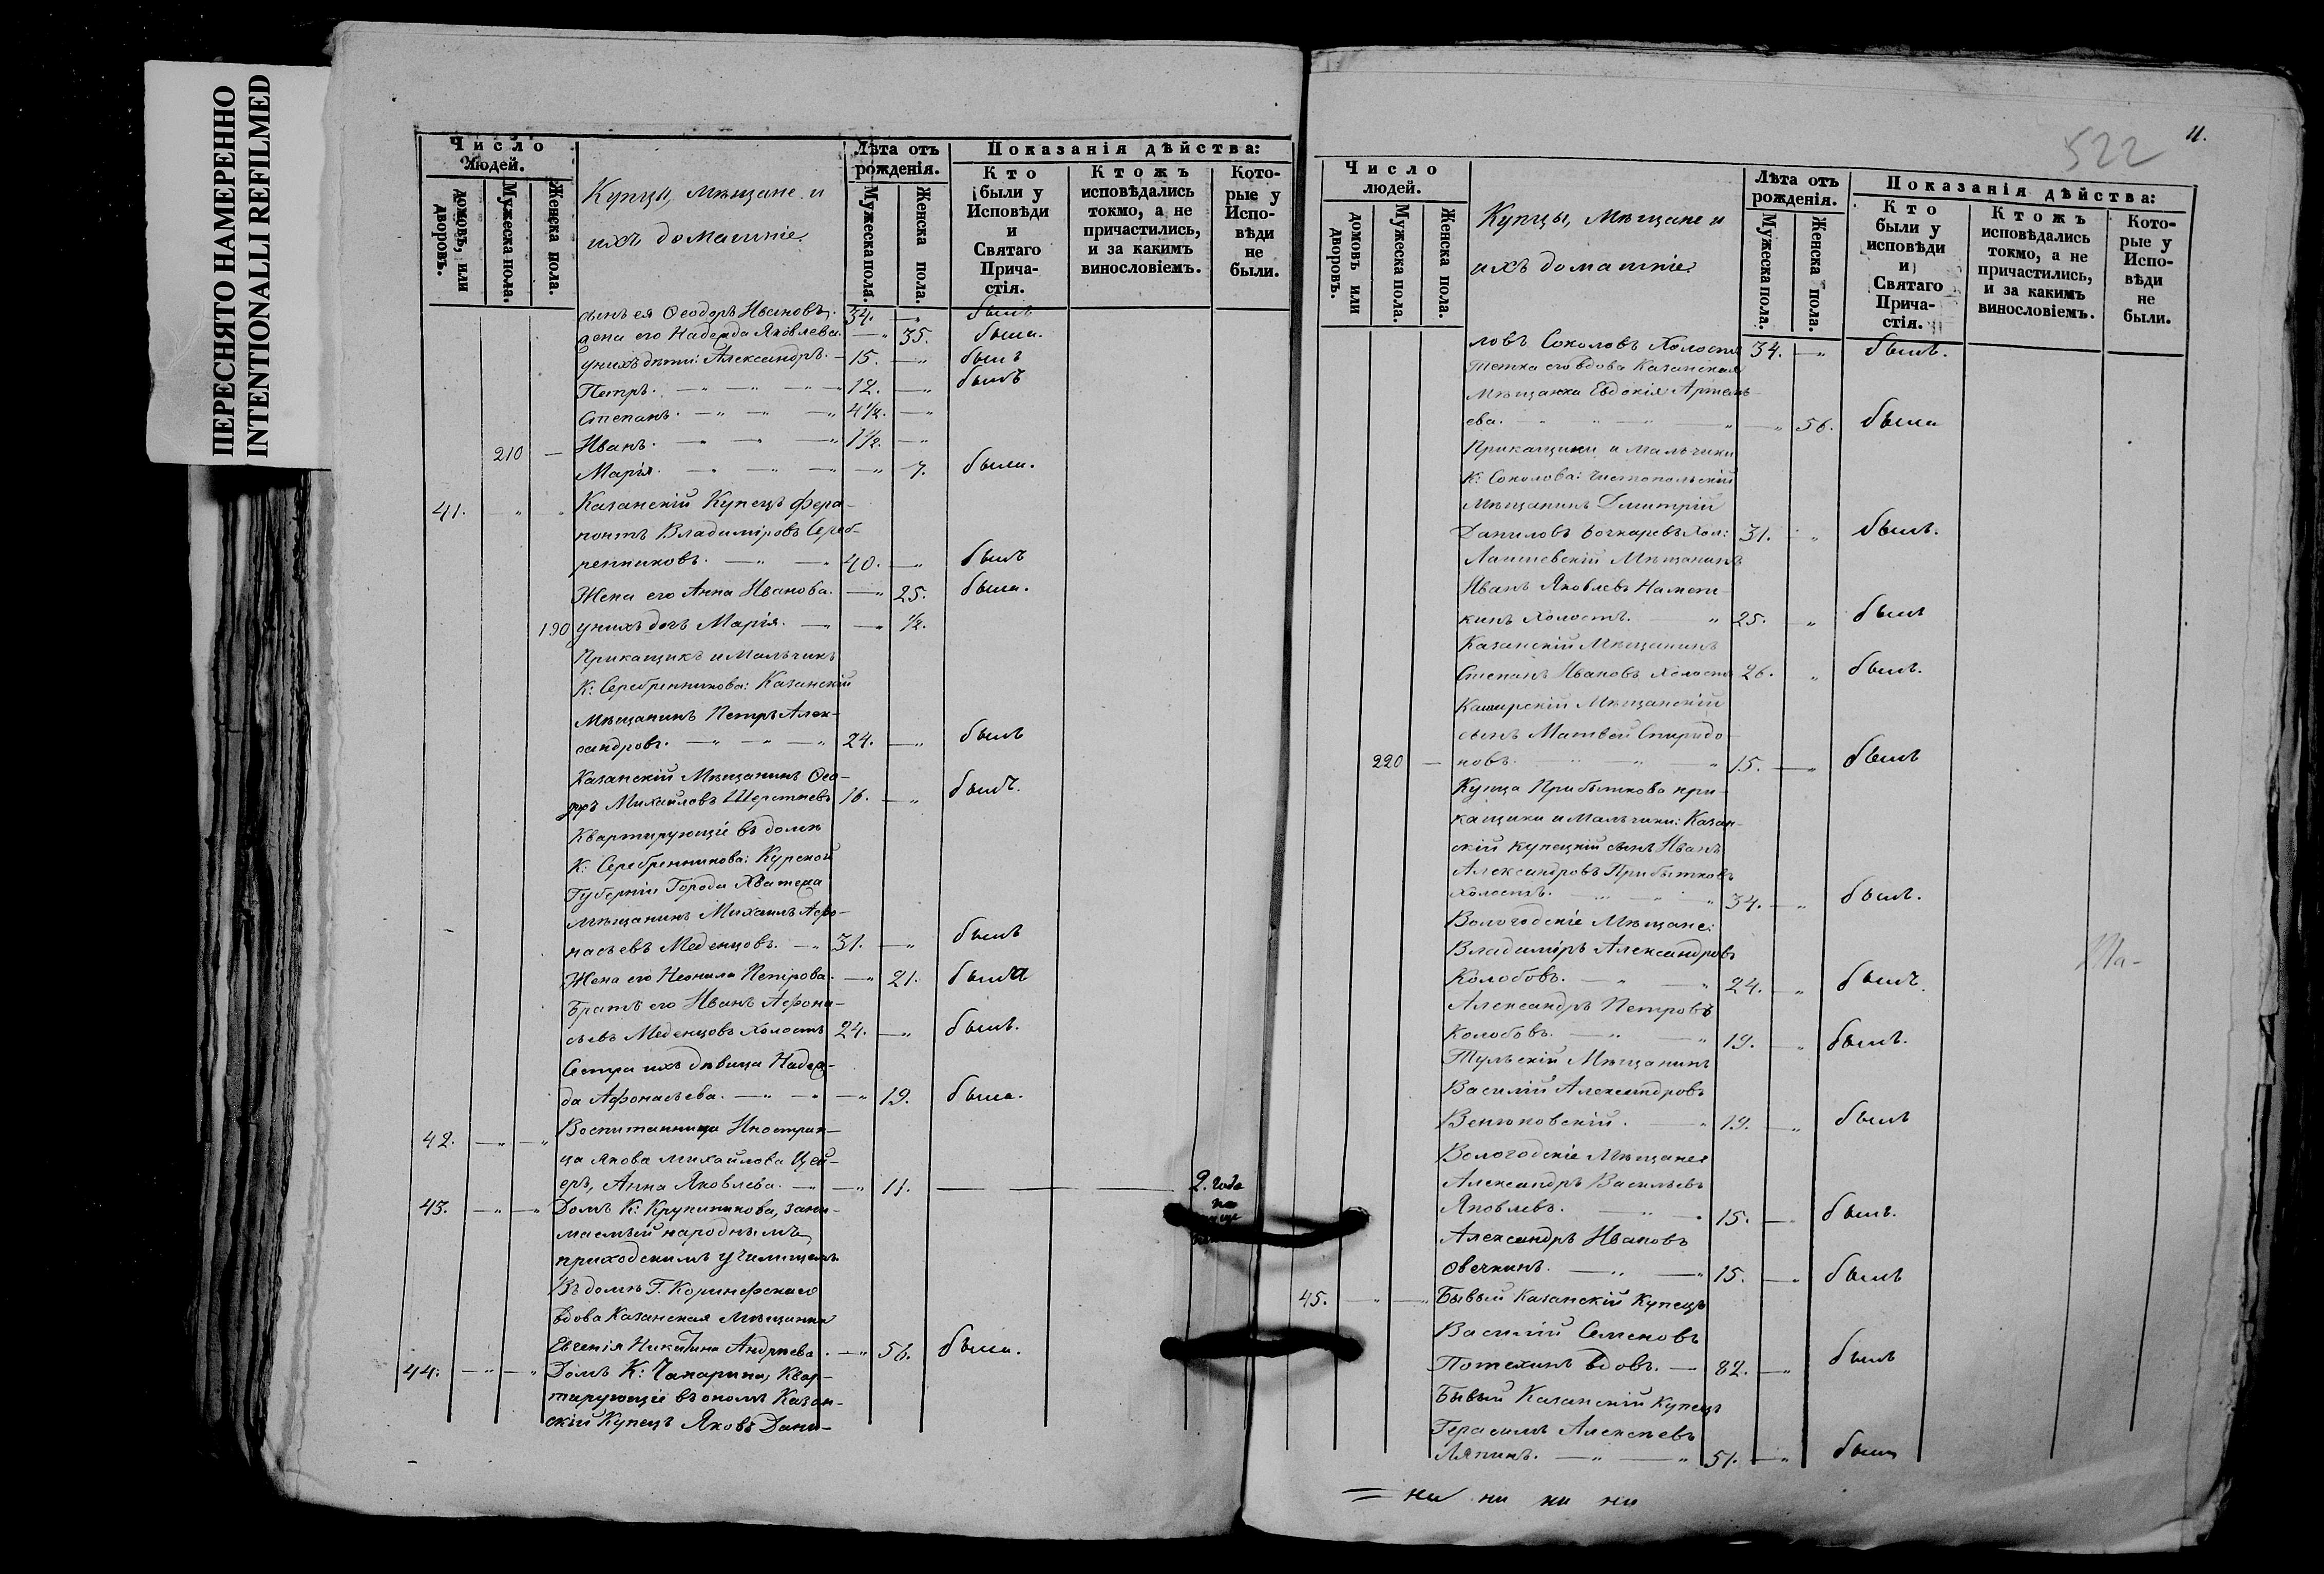 ПЕРЕСНЯТО НАМЕРЕННО
INTENTIONALLI REFILMED
Число людей.
домовъ, или дворовъ.
Мужеска пола.
Женска пола.
Купцы, Мѣщане и
ихъ домашніе
Лѣта отъ рожденія.
Мужеска пола.
Женска пола.
Показанія дѣйства:
Кто были у Исповѣди и Святаго Прича-стія.
Ктожъ исповѣдались токмо, а не причастились, и за какимъ винословіемъ.
Кото-рые у Испо-вѣди не были.
сынъ ея Ѳеодоръ Ивановъ. 34. —„ былъ
жена его Надежда Яковлева. —„ 35. была.
у нихъ дѣти: Александръ. — 15. —„ былъ
Петръ. —„ —„ —„ 12. —„ былъ
Степанъ. —„ —„ —„ 4 1/2. —„
210 — Иванъ. —„ —„ —„ 1 1/2. —„
Марія. —„ —„ —„ —„ 7. была.
41. —„ „ Казанскій Купецъ Фера-
понтъ Владиміровъ Сереб-
ренниковъ. —„ —„ 40. —„ былъ
Жена его Анна Иванова. —„ 25. была.
190 у нихъ дочь Марія. —„ —„ 1/2.
Прикащикъ и Мальчикъ
К: Серебренникова: Казанскій
Мѣщанинъ Петръ Алек-
сандровъ. —„ —„ —„ 24. —„ былъ
Казанскій Мѣщанинъ Ѳео-
доръ Михайловъ Шерстневъ 16. —„ былъ.
Квартирующіе въ домѣ
К: Серебренникова: Курской
Губерніи Города
Мѣщанинъ Михаилъ Афо-
насьевъ Меденцовъ. —„ 31. —„ былъ
Жена его Неонила Петрова. —„ 21. была
Братъ его Иванъ Афона-
сьевъ Меденцовъ Холостъ 24. —„ былъ.
Сестра ихъ дѣвица Надеж-
да Афонасьева. —„ —„ —„ 19. была.
42. —„ —„ Воспитанница Иностран-
ца Якова Михайлова Цей-
еръ, Анна Яковлева. —„ —„ 11. — 2. года
43. —„ —„ Домъ К: Крупиникова, зани-
маемый народнымъ
приходскимъ училищемъ
Въ домѣ Г. Коринфскаго
Вдова Казанская Мѣщанка
Евгенія Никитина Андреева. —„ 56. была.
44. —„ —„ Домъ К: Чакарина, Квар-
тирующіе въ ономъ Казан-
скій Купецъ Яковъ Дани-
522
11.
Число людей.
домовъ или дворовъ.
Мужеска пола.
Женска пола.
Купцы, Мѣщане и
ихъ домашніе
Лѣта отъ рожденія.
Мужеска пола.
Женска пола.
Показанія дѣйства:
Кто были у исповѣди и Святаго Прича-стія.
Ктожъ исповѣдались токмо, а не причастились, и за какимъ винословіемъ.
Кото-рые у Испо-вѣди не были.
ловъ Соколовъ Холостъ 34. —„ былъ.
Тетка его вдова Казанская
Мѣщанка Евдокія Артемь-
ева. —„ —„ 56. была
Прикащики и Мальчики
К: Соколова: Чистопольскій
Мѣщанинъ Дмитрій
Даниловъ Бочкаревъ Хол: 31. „ былъ.
Лаишевскій Мѣщанинъ
Иванъ Яковлевъ Намет-
кинъ Холостъ. „ 25. „ былъ
Казанскій Мѣщанинъ
Степанъ Ивановъ Холостъ 26. „ былъ.
Каширскій Мѣщанскій
сынъ Матвей Спиридо-
220 — новъ. —„ —„ —„ 15. —„ былъ
Купца Прибыткова при-
кащики и Мальчики: Казан-
скій купецкій сынъ Иванъ
Александровъ Прибытковъ
холостъ. —„ 34. —„ былъ.
Вологодскіе Мѣщане:
Владиміръ Александровъ
Колобовъ. —„ —„ 24. —„ былъ.
Александръ Петровъ
Колобовъ. —„ —„ 19. —„ былъ.
Тульскій Мѣщанинъ
Василій Александровъ
Венюковскій. —„ 19. —„ былъ
Вологодскіе Мѣщане
Александръ Васильевъ
Яковлевъ. —„ —„ 15. —„ былъ.
Александръ Ивановъ
Овечкинъ. —„ —„ 15. —„ былъ
45. —„ —„ Бывый Казанскій Купецъ
Василій Семеновъ
Потехинъ вдовъ. — 82. —„ былъ
Бывый Казанскій Купецъ
Герасимъ Алексѣевъ
Ляпинъ. —„ —„ 51. —„ былъ
Та-
= ни ни ни ни